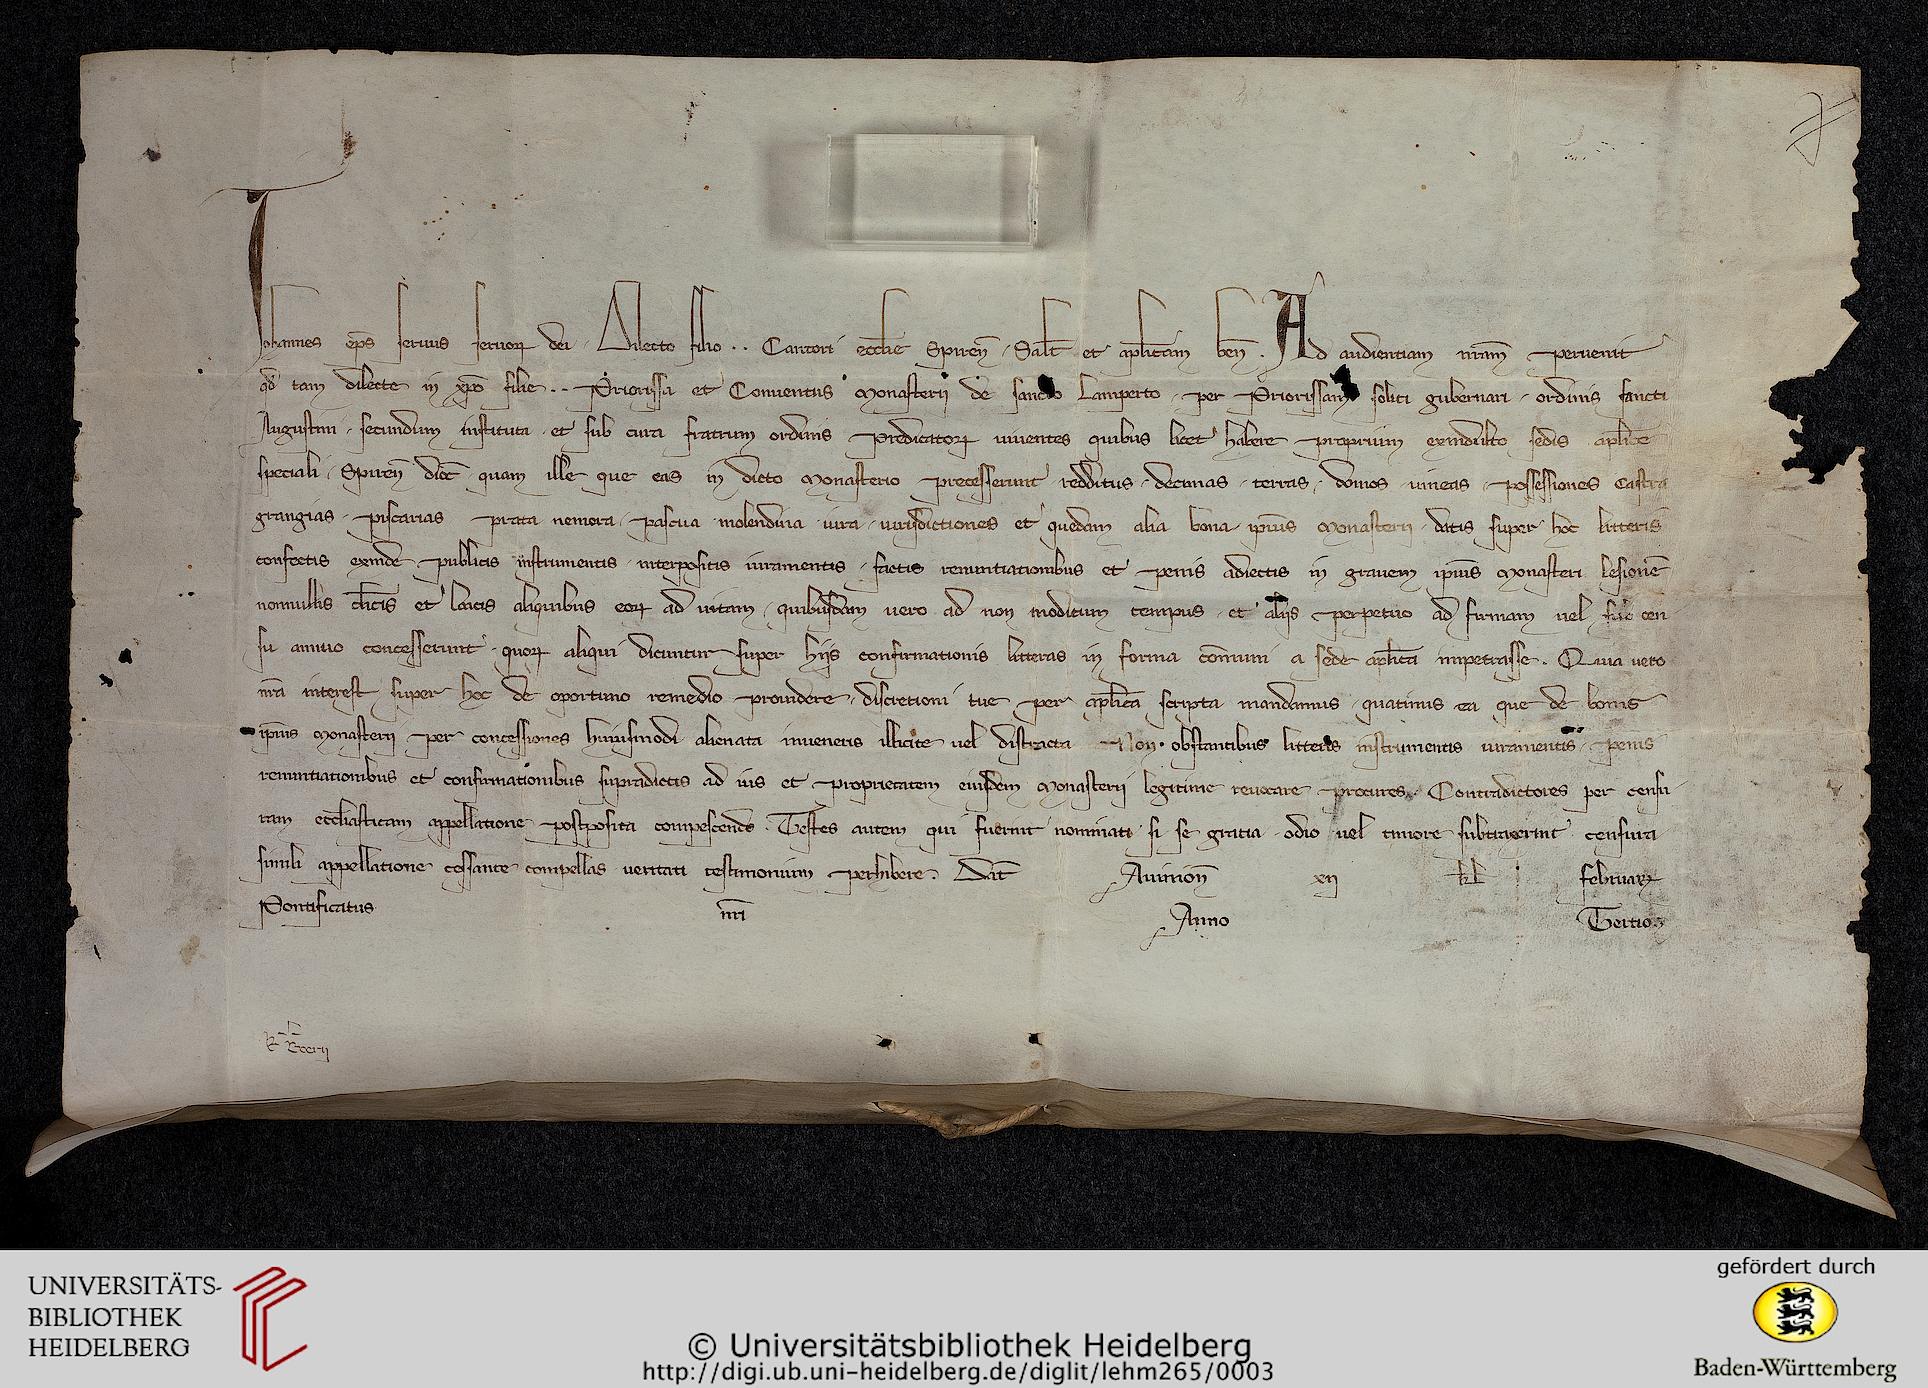 Johannes ep̅s servus servoꝝ dei. Dilecto filio . . Cantori eccl̅ie Spiren̅. Sal̅t et ap̅licam ben̅. Ad audientiam nr̅am pervenit
qd̅ tam dilecte in xp̅o filie . . Priorissa et Conventus Monasterij de sancto Lamperto. per Priorissam soliti gubernari. ordinis sancti
Augustini. secundum instituta. et sub cura fratrum ordinis Predicatoꝝ viventes quibus licet habere proprium ex indulto sedis ap̅lice
speciali. Spiren̅ dioc̅. quam ille que eas in dicto Monasterio precesserunt redditus. decimas. terras. domos vineas. possessiones Castra
grangias. piscarias prata nemora. pascua molendina iura. iurisdictiones et quedam alia bona ip̅ius Monasterij. datis super hoc litteris
confectis exinde publicis instrumentis. interpositis iuramentis. factis renuntiationibus et penis adiectis in gravem ip̅ius Monasterii lesione̅
nonnullis cl̅icis et laicis aliquibus eoꝝ ad vitam. quibusdam vero ad non modicum tempus. et alijs perpetuo ad firmam vel sub cen
su annuo concesserunt. quoꝝ aliqui dicuntur super hijs confirmationis litteras in forma com̅uni a sede ap̅lica impetrasse. Quia vero
nr̅a interest super hoc de oportuno remedio providere. discretioni tue per ap̅lica scripta mandamus. quatinus ea que de bonis
ip̅ius Monasterij per concessiones huiusmodi alienata inveneris illicite vel distracta Non obstantibus litteris instrumentis iuramentis. penis
renuntiationibus et confirmationibus supradictis ad ius et proprietatem eiusdem Monasterij legitime revocare procures. Contradictores per censu
ram eccl̅iasticam appellatione postposita compescendo. Testes autem qui fuerint nominati si se gratia. odio vel timore subtraxerint censura
simili appellatione cessante compellas veritati testimonium perhibere. Dat̅ Avinion̅ xij kl̅ februaꝝ
Pontificatus nr̅i Anno Tertio
UNIVERSITÄTS-
BIBLIOTHEK
HEIDELBERG
© Universitätsbibliothek Heidelberg
http://digi.ub.uni-heidelberg.de/diglit/lehm265/0003
gefördert durch
Baden-Württemberg